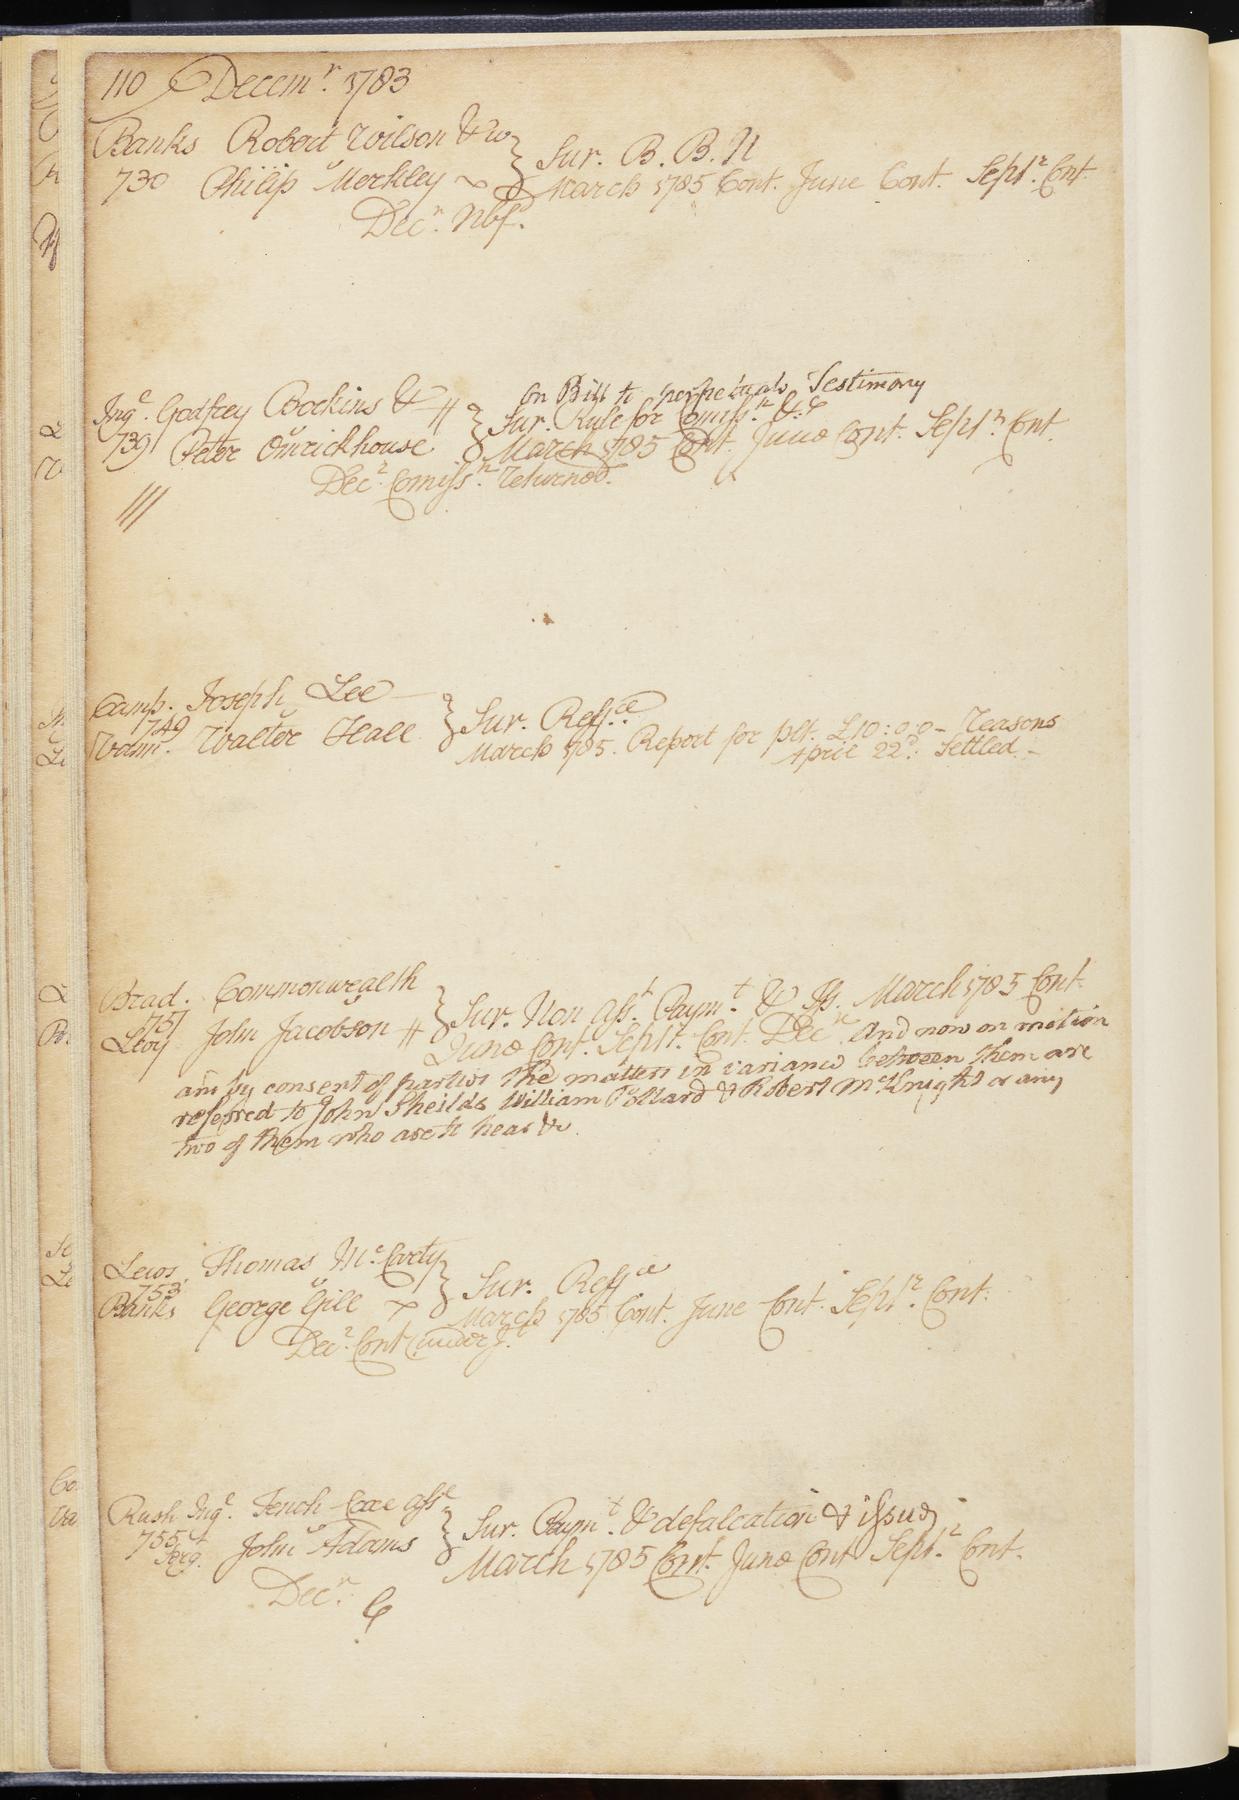 110 Decemr. 1783
Banks Robert Wilson & w
730 Philip Merkley
Sur. B. B. N
March 1785 Cont. June Cont. Septr. Cont
Decr. Nbf.
Ingl. Godfrey Bockins &
739 Peter Omrickhouse
On Bill to perpetuate Testimony
Sur. Rule for Comissn. &c
March 1785 Cont. June Cont. Septr. Cont.
Decr. Comissn. Returned.
Camp. Joseph Lee
749
Vann. Walter Hall
Sur. Reffce
March 1785. Report for plt. £10:0:0 - Reasons
April 22d. Settled -
Brad. Commonwealth
751
Levy John Jacobson
Sur. Non Asst. Paymt. & Iss. March 1785 Cont
June Cont. Septr. Cont. Decr. And now on motion
and by consent of parties the matters in variance between them are
referred to John Sheilds William Pollard & Robert McKnight or any
two of them who are to hear &c.
Lewis Thomas McCarty
753
Banks George Gill
Sur. Reffce
March 1785 Cont. June Cont. Septr. Cont.
Decr. Cont under
Rush Ingl. Tench Coxe Asse
755
Serg. John Adams
Sur. Paymt. & defalcation & issue
March 1785 Cont. June Cont Septr. Cont.
Decr. C